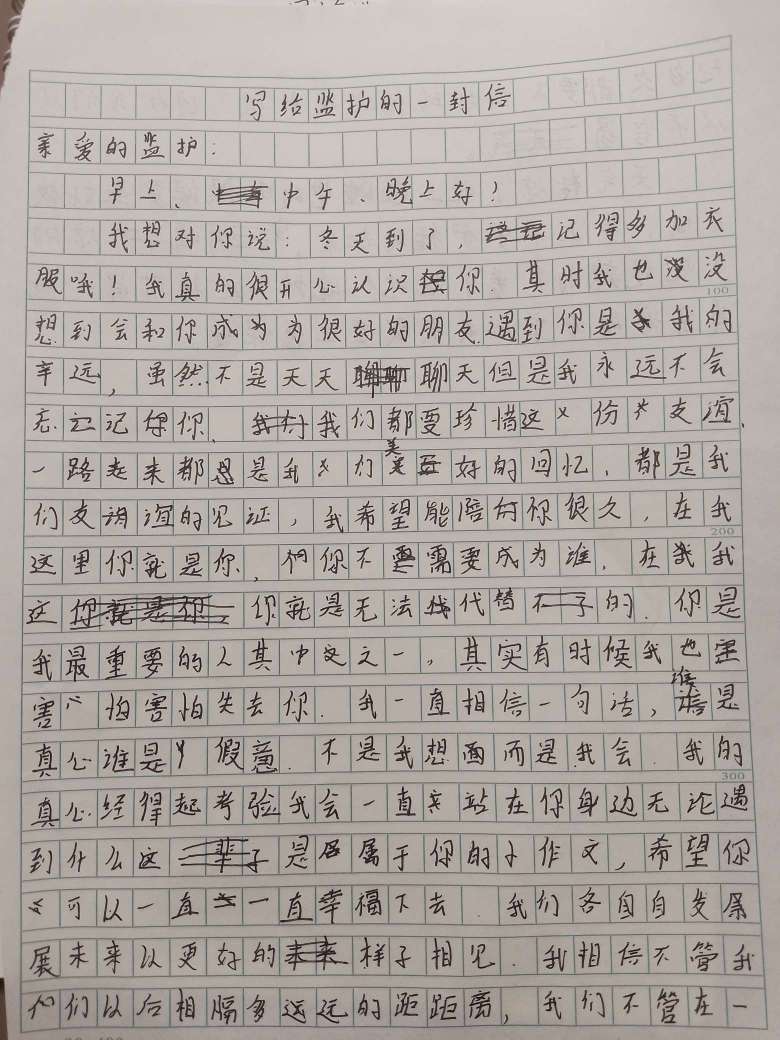 写给监护的一封信
亲爱的监护：
早上、中午、晚上好！
我想对你说：冬天到了，记得多加衣
服哦！我真的很开心认识你.其时我也没
想到会和你成为为很好的朋友.遇到你是我的
幸远，虽然不是天天聊天但是我永远不会
忘记你、我们都要珍惜这份友谊、
一路走来都是我们美好的回忆，都是我
们友谊的见证，我希望能陪你很久，在我
这里你就是你，你不需要成为谁．在我
这你就是无法代替的．你是
我最重要的人其中文之一，其实有时候我也
害怕害怕失去你．我一直相信一句话，谁是
真心谁是假意．不是我想面而是我会．我的
真心经得起考验我会一直站在你身边无论遇
到什么这是属于你的作文，希望你
可以一直一直幸福下去 我们各自自发展
展未来以更好的样子相见．我相信不管我
们以后相隔多远远的距距离，我们不管在一
100
200
300